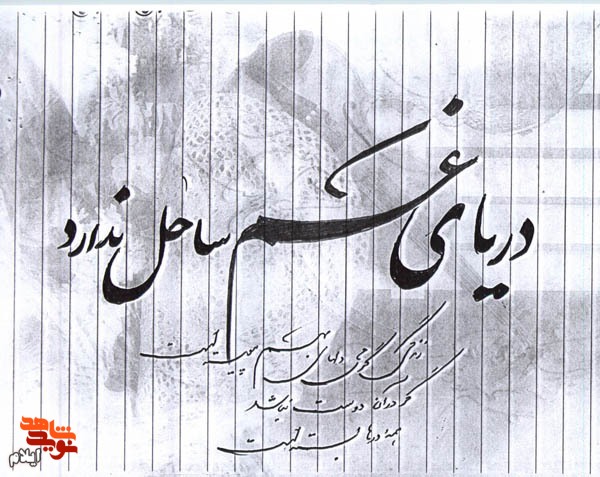 دریای غم ساحل ندارد
زندگی گرمی دلهای بهم پیوسته است
گر در آن دوست نباشد
همه درها بسته است
نوید شاهد
ایلام